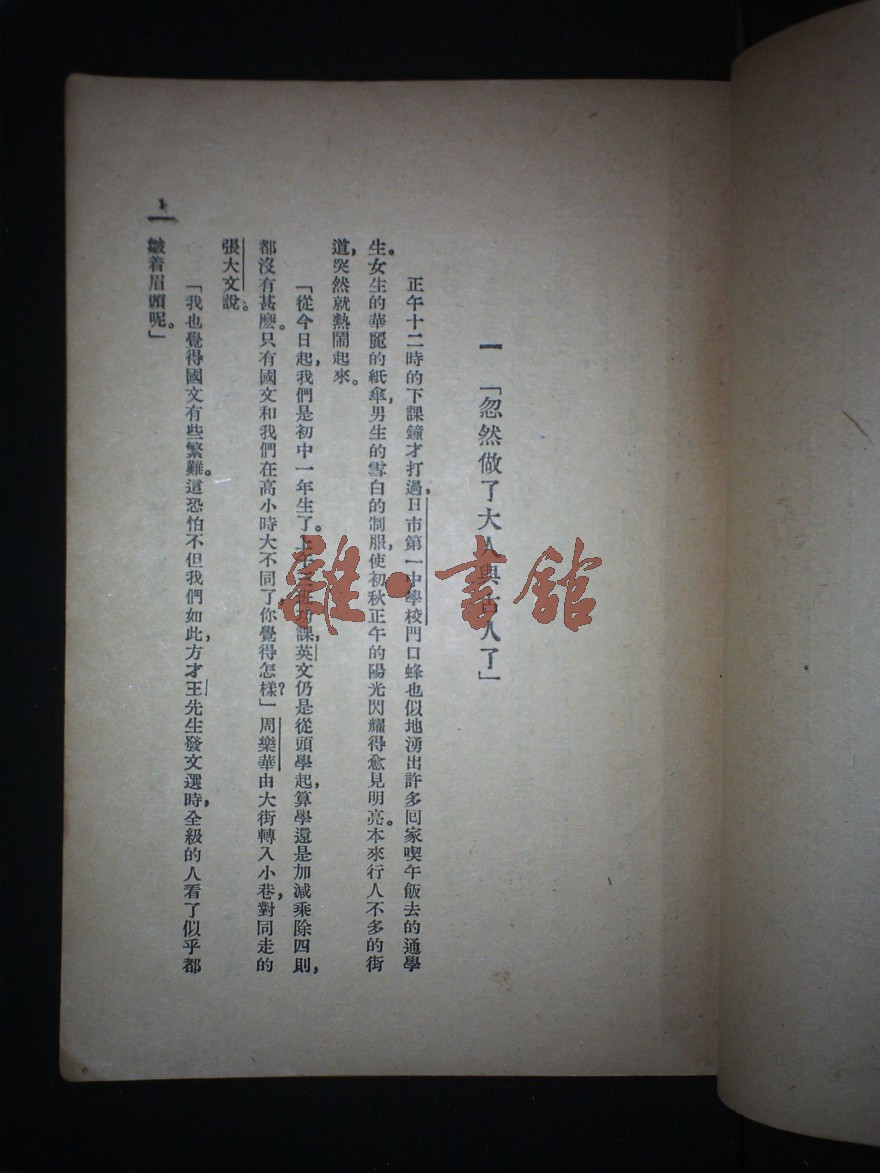 一　「忽然做了大人與古人了」
正午十二時的下課鐘才打過，H市第一中學校門口蜂也似地湧出許多回家喫午飯去的通學
生。女生的華麗的紙傘，男生的雪白的制服，使初秋正午的陽光閃耀得愈見明亮。本來行人不多的街
道，突然就熱鬧起來。
「從今日起，我們是初中一年生了。上午三班功課，英文仍是從頭學起，算學還是加減乘除四則，
都沒有甚麽。只有國文和我們在高小時大不同了，你覺得怎樣？」周樂華由大街轉入小巷，對同走的
張大文說。
「我也覺得國文有些繁難。這恐怕不但我們如此，方才王先生發文選時，全級的人看了似乎都
皺着眉頭呢。」
1
雜·書館